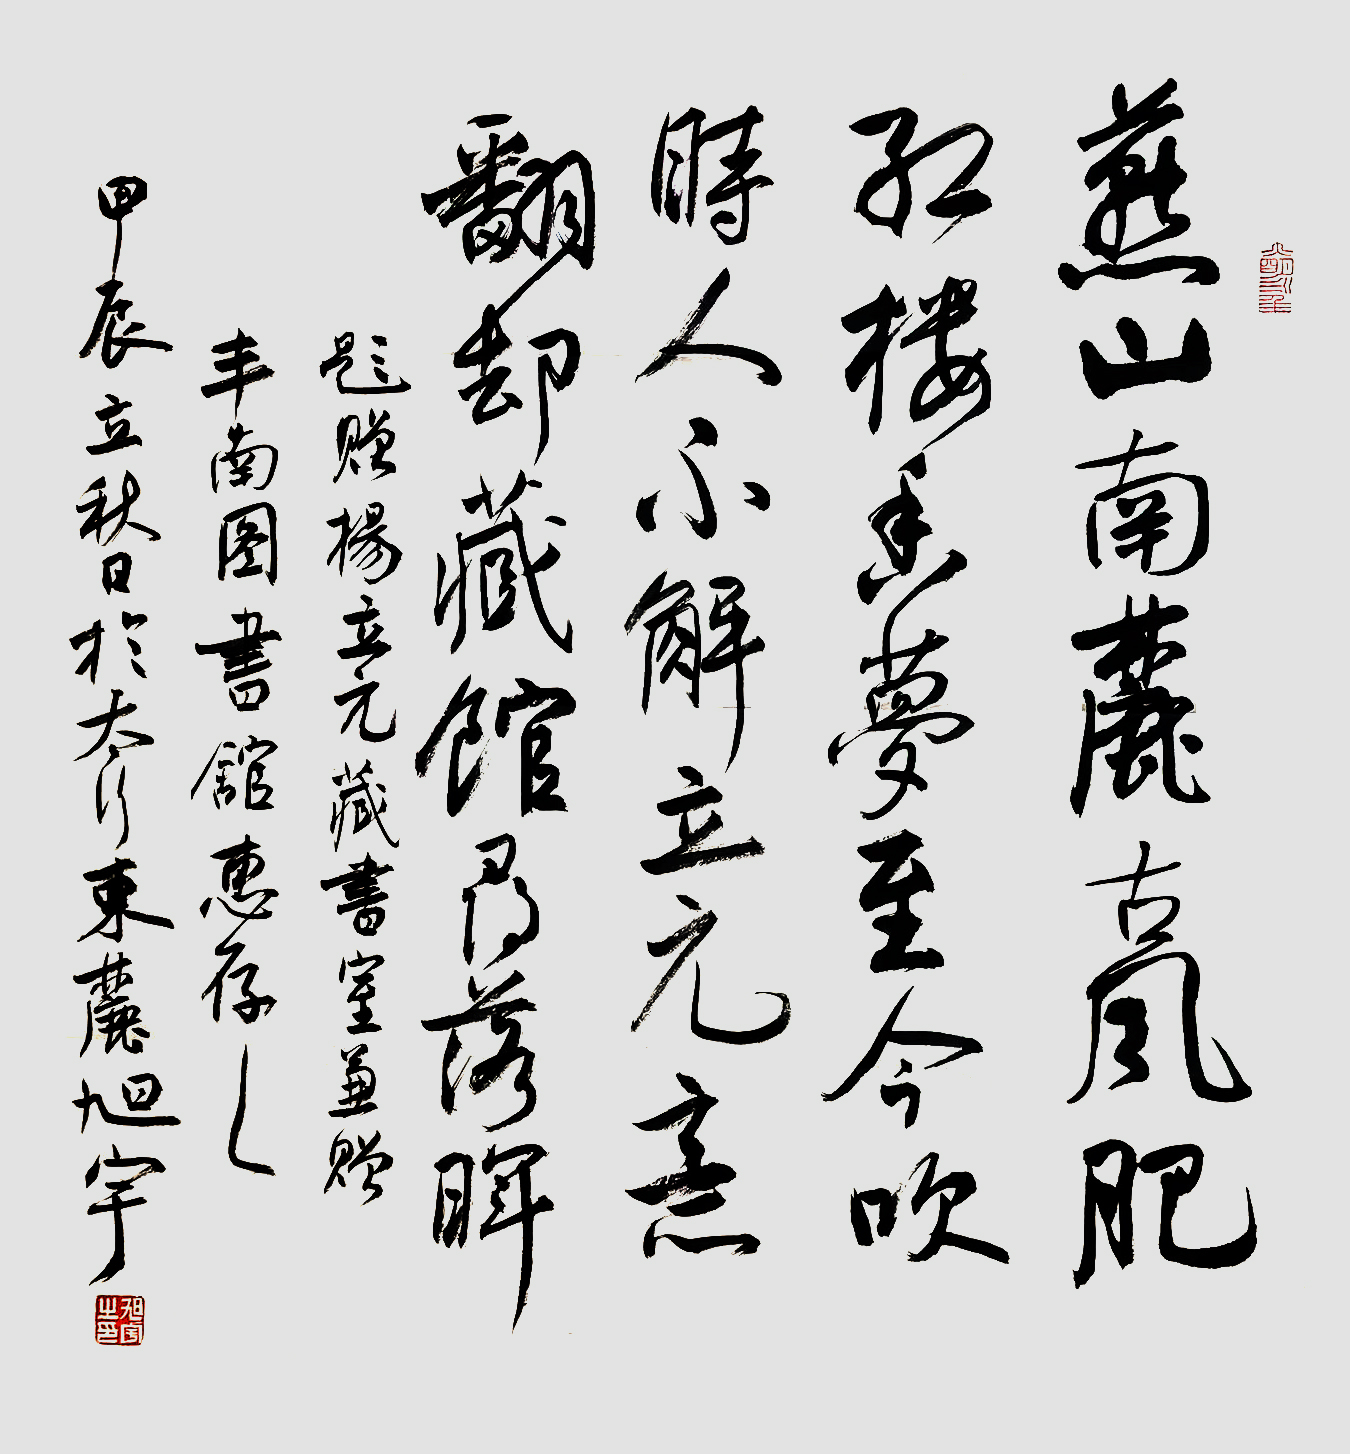 燕山南麓古風肥
紅樓香夢至今吹
時人不解立元意
翻却藏館尋落暉
題贈楊立元藏書室兼贈
丰南图書館惠存
甲辰立秋日於太行東麓旭宇
旭宇之印